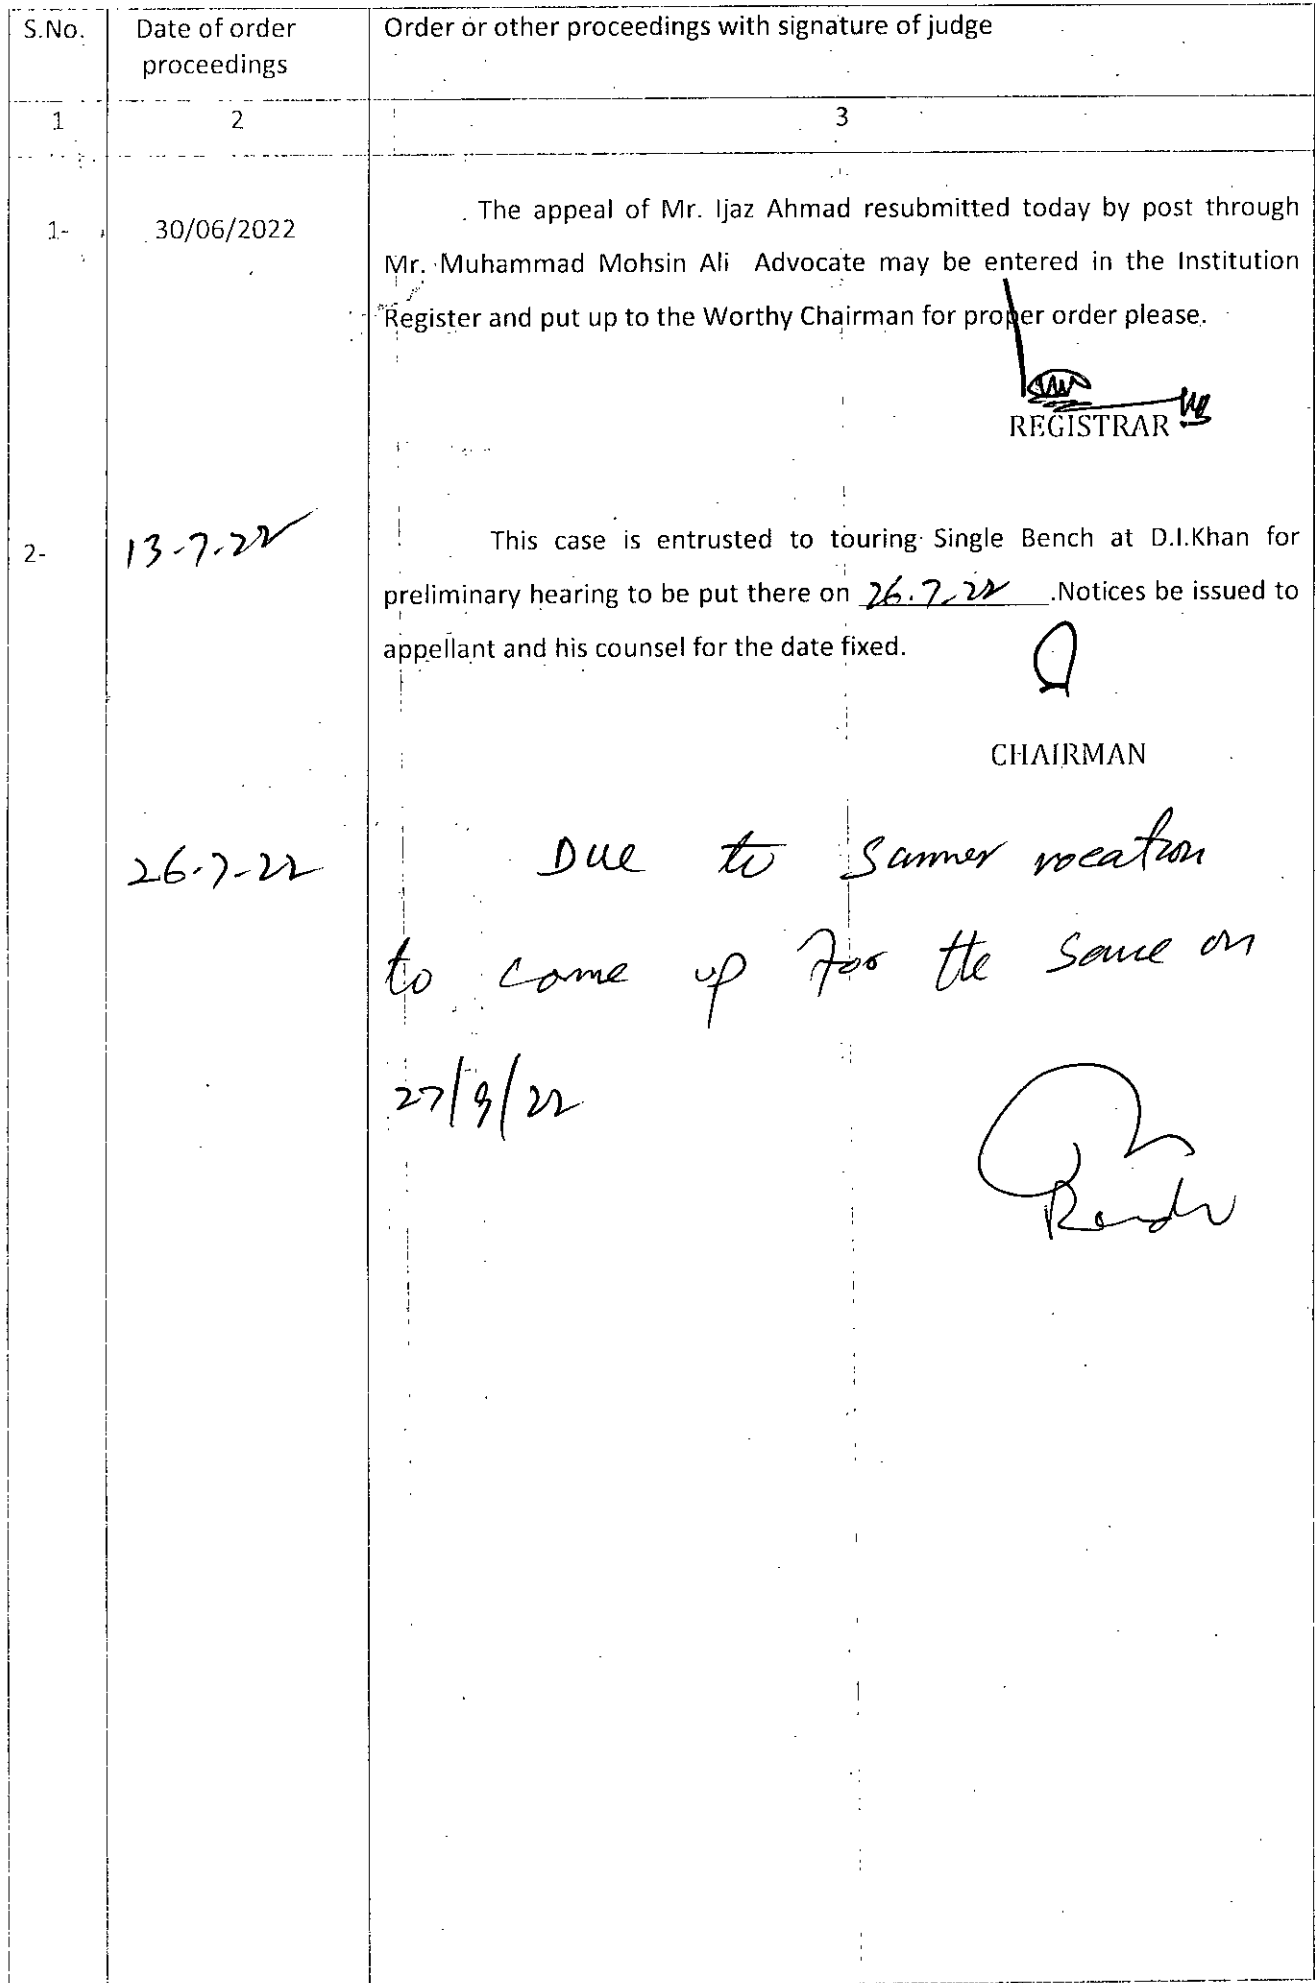 S.No.
Date of order
proceedings
Order or other proceedings with signature of judge
1
2
3
1-
30/06/2022
The appeal of Mr. Ijaz Ahmad resubmitted today by post through
Mr. Muhammad Mohsin Ali Advocate may be entered in the Institution
Register and put up to the Worthy Chairman for proper order please.
REGISTRAR
2-
13-7-22
This case is entrusted to touring Single Bench at D.I.Khan for
preliminary hearing to be put there on 26.7.22 .Notices be issued to
appellant and his counsel for the date fixed.
CHAIRMAN
26-7-22
Due to Summer vocation
to come up for the same on
27/9/22